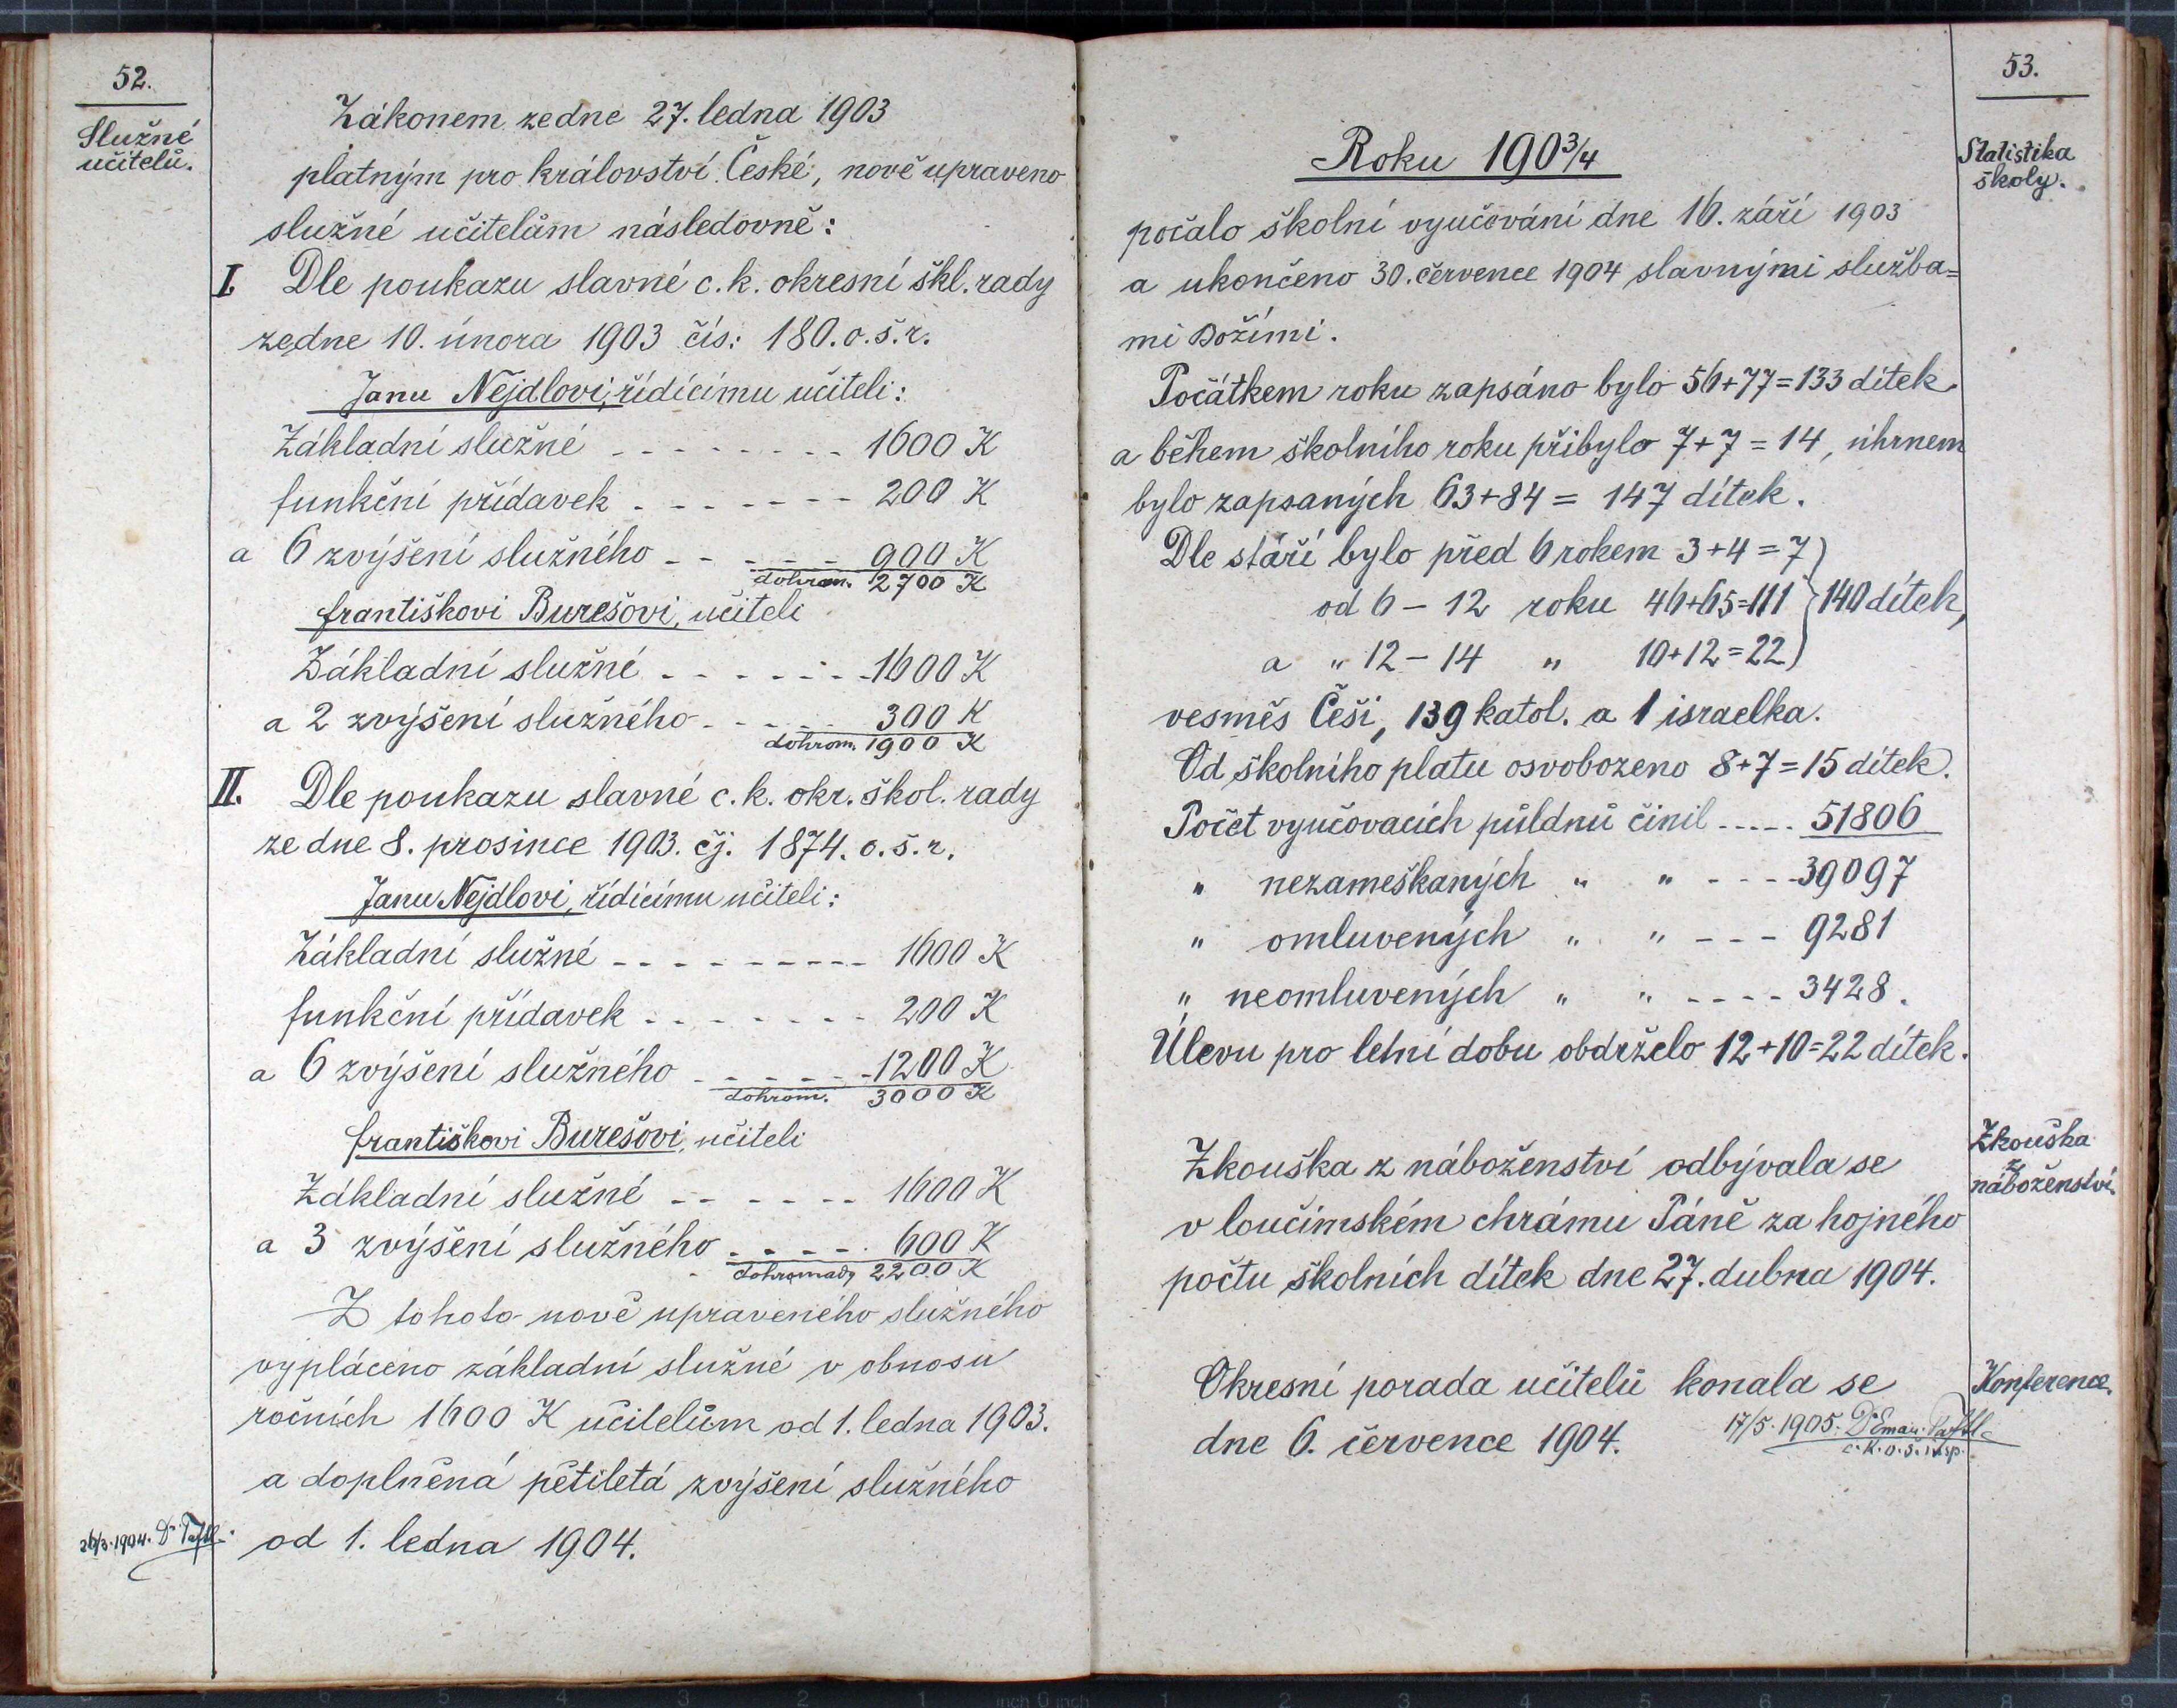 52.
Služné
učitelů.
Zákonem ze dne 27. ledna 1903
platným pro království České, nově upraveno
služné učitelům následovně:
I. Dle poukazu slavné c. k. okresní škl. rady
ze dne 10. února 1903 čís: 180. o. š. r.
Janu Nejdlovi, řídícímu učiteli:
Základní služné - - - - - - - - 1600 K
funkční přídavek - - - - - - - 200 K
a 6 zvýšení služného - - - - - - 900 K
dohrom. 2700 K
Františkovi Burešovi, učiteli
Základní služné - - - - - - - 1600 K
a 2 zvýšení služného - - - - - 300 K
dohrom. 1900 K
II. Dle poukazu slavné c. k. okr. škol. rady
ze dne 8. prosince 1903. čj. 1874. o. š. r.
Janu Nejdlovi, řídícímu učiteli:
Základní služné - - - - - - - - - 1600 K
funkční přídavek - - - - - - - 200 K
a 6 zvýšení služného - - - - - - 1200 K
dohrom. 3000 K
Františkovi Burešovi, učiteli
Základní služné - - - - - - 1600 K
a 3 zvýšení služného - - - - - 600 K
dohromady 2200 K
Z tohoto nově upraveného služného
vypláceno základní služné v obnosu
ročních 1600 K učitelům od 1. ledna 1903.
a doplněná pětiletá zvýšení služného
od 1. ledna 1904.
26/3. 1904. Dr.
53.
Statistika
školy.
Roku 1903/4
počalo školní vyučování dne 16. září 1903
a ukončeno 30. července 1904 slavnými služba=
mi Božími.
Počátkem roku zapsáno bylo 56+77=133 dítek
a během školního roku přibylo 7+7=14, úhrnem
bylo zapsaných 63+84= 147 dítek.
Dle stáří bylo před 6 rokem 3+4=7
od 6 – 12 roku 46+65=111 } 140 dítek,
a „ 12 – 14 „ 10+12=22
vesměs Češi, 139 katol. a 1 israelka.
Od školního platu osvobozeno 8+7=15 dítek.
Počet vyučovacích půldnů činil ----- 51806
„ nezameškaných „ „ - - - - 39097
„ omluvených „ „ - - - 9281
„ neomluvených „ „ - - - - 3428.
Úlevu pro letní dobu obdrželo 12+10=22 dítek.
Zkouška
z
náboženství.
Zkouška z náboženství odbývala se
v loučimském chrámu Páně za hojného
počtu školních dítek dne 27. dubna 1904.
Konference.
Okresní porada učitelů konala se
dne 6. července 1904.
17/5. 1905. Dr Eman.
c. k. o. š. insp.